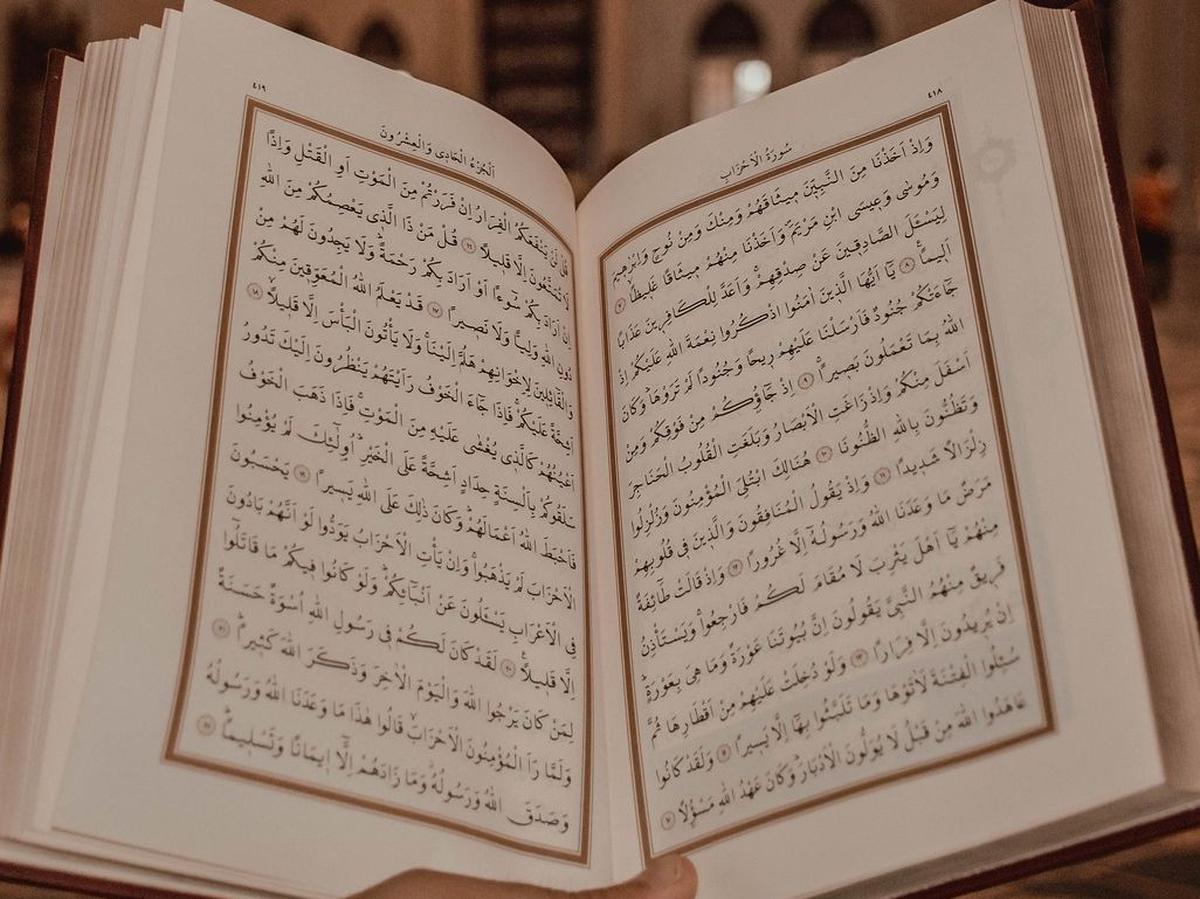 ٤١٨
سُورَةُ الْاَحْزَابِ
وَاِذْ اَخَذْنَا مِنَ النَّبِيّ۪نَ م۪يثَاقَهُمْ وَمِنْكَ وَمِنْ نُوحٍ وَاِبْرٰه۪يمَ
وَمُوسٰى وَع۪يسَى ابْنِ مَرْيَمَۖ وَاَخَذْنَا مِنْهُمْ م۪يثَاقًا غَل۪يظًاۙ ٧
لِيَسْـَٔلَ الصَّادِق۪ينَ عَنْ صِدْقِهِمْۚ وَاَعَدَّ لِلْكَافِر۪ينَ عَذَابًا
اَل۪يمًا۟ ٨ يَٓا اَيُّهَا الَّذ۪ينَ اٰمَنُوا اذْكُرُوا نِعْمَةَ اللّٰهِ عَلَيْكُمْ اِذْ
جَٓاءَتْكُمْ جُنُودٌ فَاَرْسَلْنَا عَلَيْهِمْ ر۪يحًا وَجُنُودًا لَمْ تَرَوْهَاۜ وَكَانَ
اللّٰهُ بِمَا تَعْمَلُونَ بَص۪يرًاۚ ٩ اِذْ جَٓاؤُ۫كُمْ مِنْ فَوْقِكُمْ وَمِنْ
اَسْفَلَ مِنْكُمْ وَاِذْ زَاغَتِ الْاَبْصَارُ وَبَلَغَتِ الْقُلُوبُ الْحَنَاجِرَ
وَتَظُنُّونَ بِاللّٰهِ الظُّنُونَا ١٠ هُنَالِكَ ابْتُلِيَ الْمُؤْمِنُونَ وَزُلْزِلُوا
زِلْزَالًا شَد۪يدًا ١١ وَاِذْ يَقُولُ الْمُنَافِقُونَ وَالَّذ۪ينَ ف۪ي قُلُوبِهِمْ
مَرَضٌ مَا وَعَدَنَا اللّٰهُ وَرَسُولُهُٓ اِلَّا غُرُورًا ١٢ وَاِذْ قَالَتْ طَٓائِفَةٌ
مِنْهُمْ يَٓا اَهْلَ يَثْرِبَ لَا مُقَامَ لَكُمْ فَارْجِعُواۚ وَيَسْتَأْذِنُ
فَر۪يقٌ مِنْهُمُ النَّبِيَّ يَقُولُونَ اِنَّ بُيُوتَنَا عَوْرَةٌ وَمَا هِيَ بِعَوْرَةٍۚ
اِنْ يُر۪يدُونَ اِلَّا فِرَارًا ١٣ وَلَوْ دُخِلَتْ عَلَيْهِمْ مِنْ اَقْطَارِهَا ثُمَّ
سُئِلُوا الْفِتْنَةَ لَاٰتَوْهَا وَمَا تَلَبَّثُوا بِهَٓا اِلَّا يَس۪يرًا ١٤ وَلَقَدْ كَانُوا
عَاهَدُوا اللّٰهَ مِنْ قَبْلُ لَا يُوَلُّونَ الْاَدْبَارَۜ وَكَانَ عَهْدُ اللّٰهِ مَسْؤُ۫لًا ١٥
٤١٩
اَلْجُزْءُ الْحَادِي وَالْعِشْرُونَ
قُلْ لَنْ يَنْفَعَكُمُ الْفِرَارُ اِنْ فَرَرْتُمْ مِنَ الْمَوْتِ اَوِ الْقَتْلِ وَاِذًا
لَا تُمَتَّعُونَ اِلَّا قَل۪يلًا ١٦ قُلْ مَنْ ذَا الَّذ۪ي يَعْصِمُكُمْ مِنَ اللّٰهِ
اِنْ اَرَادَ بِكُمْ سُٓوءًا اَوْ اَرَادَ بِكُمْ رَحْمَةًۜ وَلَا يَجِدُونَ لَهُمْ مِنْ
دُونِ اللّٰهِ وَلِيًّا وَلَا نَص۪يرًا ١٧ قَدْ يَعْلَمُ اللّٰهُ الْمُعَوِّق۪ينَ مِنْكُمْ
وَالْقَٓائِل۪ينَ لِاِخْوَانِهِمْ هَلُمَّ اِلَيْنَاۚ وَلَا يَأْتُونَ الْبَأْسَ اِلَّا قَل۪يلًاۙ ١٨
اَشِحَّةً عَلَيْكُمْۚ فَاِذَا جَٓاءَ الْخَوْفُ رَاَيْتَهُمْ يَنْظُرُونَ اِلَيْكَ تَدُورُ
اَعْيُنُهُمْ كَالَّذ۪ي يُغْشٰى عَلَيْهِ مِنَ الْمَوْتِۚ فَاِذَا ذَهَبَ الْخَوْفُ
سَلَقُوكُمْ بِاَلْسِنَةٍ حِدَادٍ اَشِحَّةً عَلَى الْخَيْرِۜ اُو۬لٰٓئِكَ لَمْ يُؤْمِنُوا
فَاَحْبَطَ اللّٰهُ اَعْمَالَهُمْۜ وَكَانَ ذٰلِكَ عَلَى اللّٰهِ يَس۪يرًا ١٩ يَحْسَبُونَ
الْاَحْزَابَ لَمْ يَذْهَبُواۚ وَاِنْ يَأْتِ الْاَحْزَابُ يَوَدُّوا لَوْ اَنَّهُمْ بَادُونَ
فِي الْاَعْرَابِ يَسْـَٔلُونَ عَنْ اَنْبَٓائِكُمْۜ وَلَوْ كَانُوا ف۪يكُمْ مَا قَاتَلُٓوا
اِلَّا قَل۪يلًا۟ ٢٠ لَقَدْ كَانَ لَكُمْ ف۪ي رَسُولِ اللّٰهِ اُسْوَةٌ حَسَنَةٌ
لِمَنْ كَانَ يَرْجُوا اللّٰهَ وَالْيَوْمَ الْاٰخِرَ وَذَكَرَ اللّٰهَ كَث۪يرًاۜ ٢١
وَلَمَّا رَاَ الْمُؤْمِنُونَ الْاَحْزَابَۙ قَالُوا هٰذَا مَا وَعَدَنَا اللّٰهُ وَرَسُولُهُ
وَصَدَقَ اللّٰهُ وَرَسُولُهُۘ وَمَا زَادَهُمْ اِلَّٓا ا۪يمَانًا وَتَسْل۪يمًاۜ ٢٢